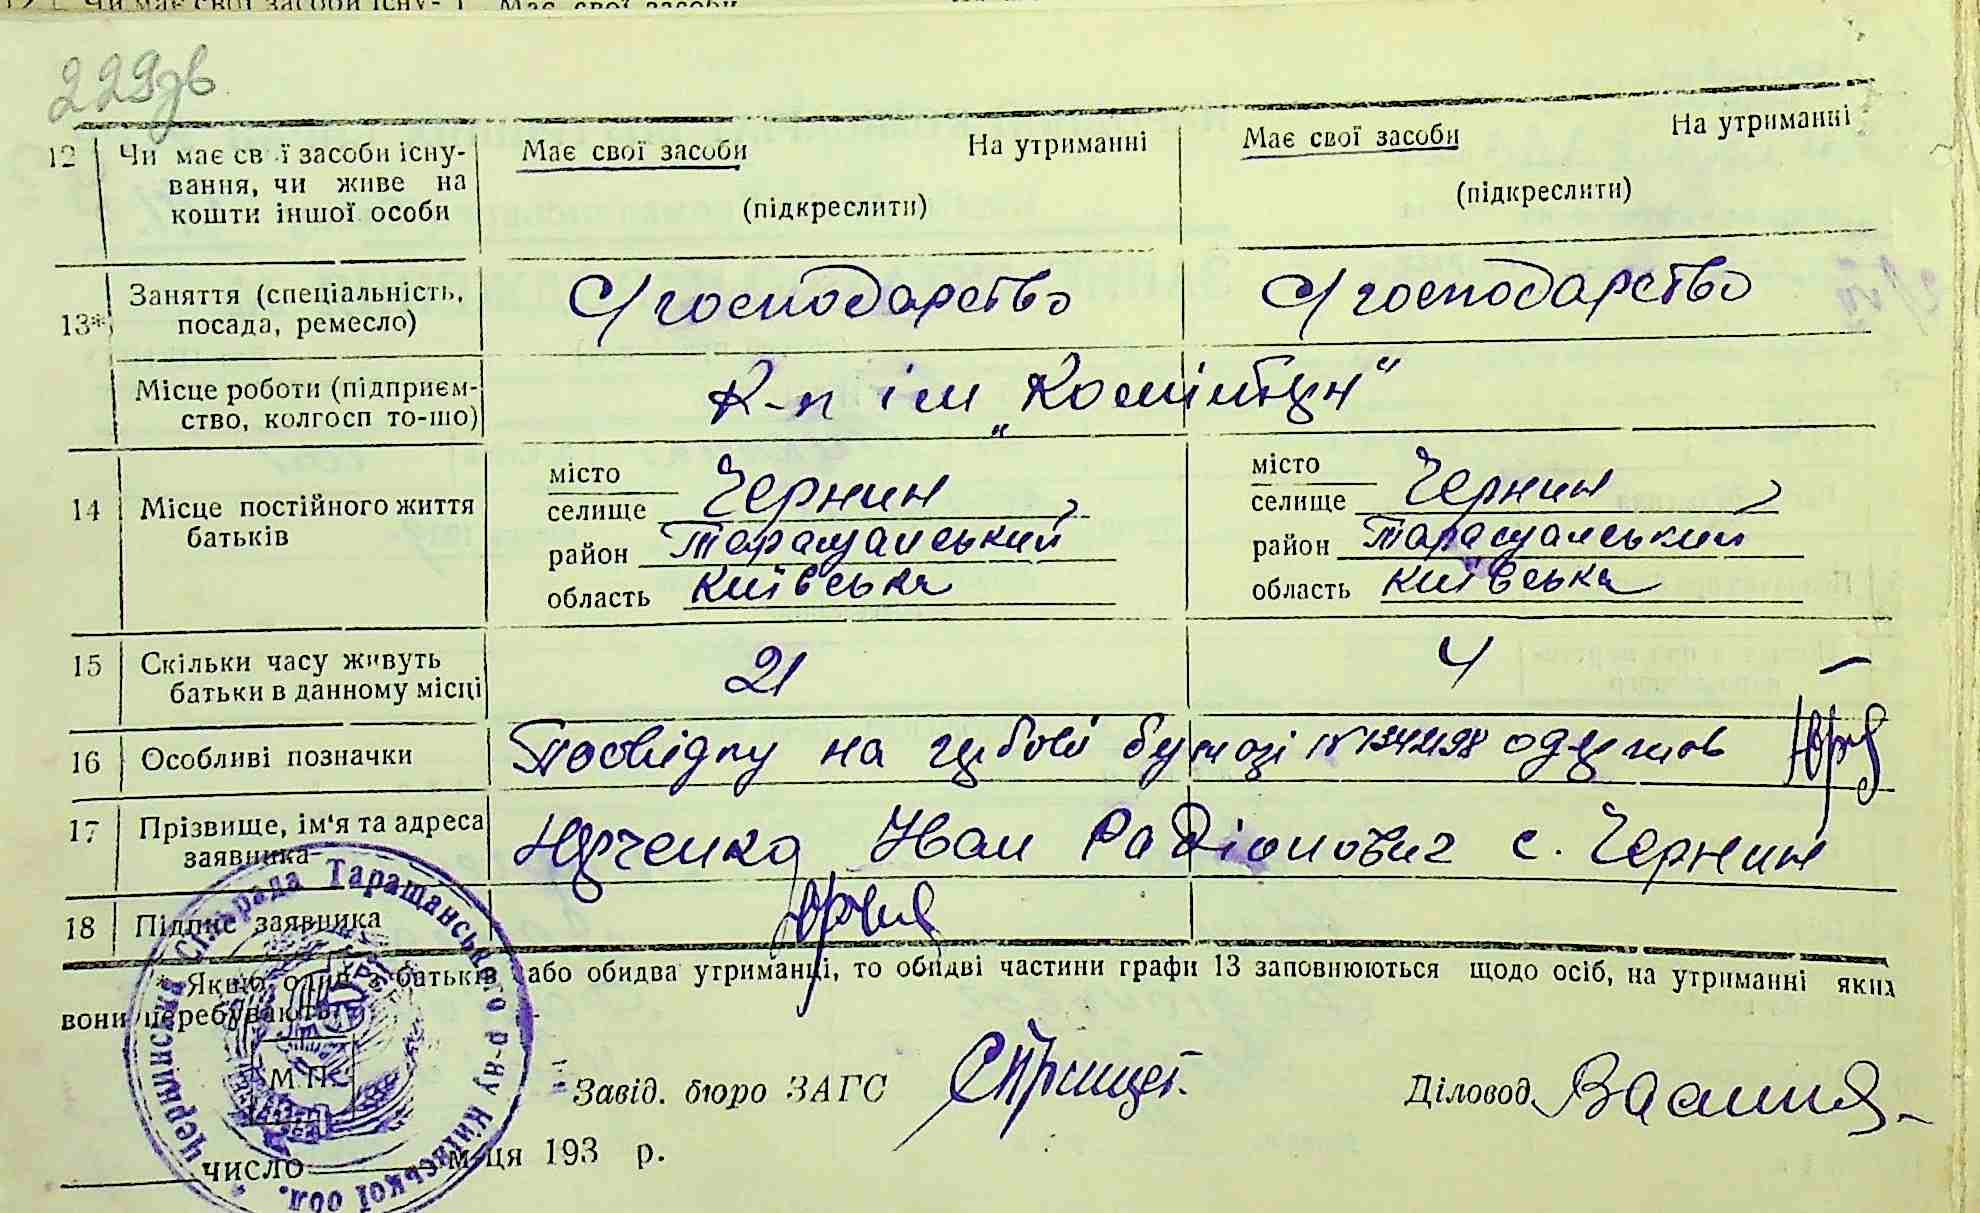 229зв
12 Чи має св ї засоби існу- Має свої засоби На утриманні Має свої засоби На утриманні
вання, чи живе на
кошти іншої особи (підкреслити) (підкреслити)
13* Заняття (спеціальність, С/господарство С/господарство
посада, ремесло)
Місце роботи (підприєм- К-п ім „Комінтерн“
ство, колгосп то-що)
14 Місце постійного життя батьків
місто
селище Чернин,
район Таращанський
область київська
місто
селище Чернин,
район Таращанський
область київська
15 Скільки часу живуть 21 4
батьки в данному місці
16 Особливі позначки Посвідку на гербові бумазі № одержав
17 Прізвище, ім'я та адреса Юрченко Іван Радіонович с. Чернин
заявника
18 Підпис заявника
* Якщо один з батьків або обидва утриманці, то обидві частини графи 13 заповнюються щодо осіб, на утриманні яких
вони перебувають.
М.П.
Завід. бюро ЗАГС Діловод
число м-ця 193 р.
Чернинська Сільрада Таращанського р-ну Київської обл.
УРСР